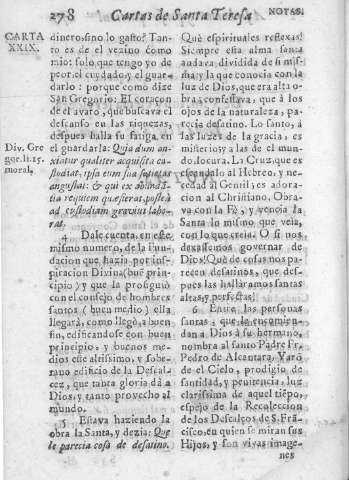 278 Cartas de Santa Teresa NOTAS.
CARTA
XXIX.
dinero, sino lo gasto? Tan-
to es de el vezino como
mio: solo que tengo yo de
peor el cuydado, y el guar-
darlo: porque como dize
San Gregorio: El coraçon
de el avaro, que buscava el
descanso en las riquezas,
despues halla su fatiga en
el guardarla: Quia dum an-
xiatur qualiter acquisita cu-
stodiat, ipsa eum sua satietas
angustat: & qui ex abunda-
tia requiem quæsierat, postea
ad custodiam gravius labo-
rat.
Div. Gre
gor. li. 15.
moral.
4 Dale cuenta, en este
mismo numero, de la fun-
dacion que hazia por ins-
piracion Divina (buē prin-
cipio) y que la prosiguió
con el consejo de hombres
santos (buen medio) ella
llegará, como llegò, a buen
fin, edificandose con buen
principio, y buenos me-
dios este altissimo, y sobe-
rano edificio de la Descal-
cez, que tanta gloria dà a
Dios, y tanto provecho al
mundo.
5 Estava haziendo la
obra la Santa, y dezia: Que
le parecia cosa de desatino.
Què espirituales reflexas!
Siempre esta alma santa
andava dividida de si mis-
ma; y la que conocia con la
luz de Dios, que era alta o-
bra, confessava, que à los
ojos de la naturaleza, pa-
recia desatino. Lo santo, à
las luzes de la gracia, es
misterio; y a las de el mun-
do, locura. La Cruz, que es
escandalo al Hebreo, y ne-
cedad al Gentil, es adora-
cion al Christiano. Obra-
va con la Fè, y vencia la
Santa lo mismo que veia,
con lo que creia. O si nos
dexassemos governar de
Dios! Què de cosas nos pa-
recen desatinos, que des-
pues las hallaramos santas
altas, y perfectas!
6 Entre las personas
santas, que la encomien-
dan a Dios à su hermano,
nombra al santo Padre Fr.
Pedro de Alcantara, Varō
de el Cielo, prodigio de
santidad, y penitencia, luz
clarissima de aquel tiēpo,
espejo de la Recoleccion
de los Descalços de S. Frā-
cisco, en quien se miran sus
Hijos, y son vivas image-
nes